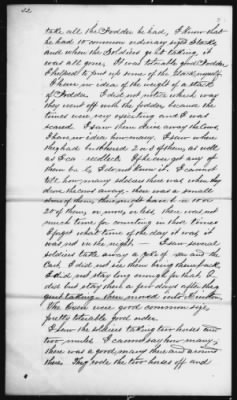 22
take all the Fodder he had, I know that
he had 10 common ordinary size Stacks
and when the Soldiers got taking it
was all gone, It was tolerable good Fodder
I helped to put up some of the Stack myself.
I have no idea of the weight of a stack
of Fodder. I did not notice which way
they went off with the fodder because the
times was very exciting and I was
scared. I saw them drive away the Cows,
I have no idea how many. I saw where
they had butchered 2 or 3 of them, as well
as I can recollect. If he ever got any of
them back I dont know it. I cannot
tell how many soldiers there was when they
drove the cows away. there was a small
drove of them, there might have been 10 or
20 of them, or more, or less, there was not
much time for counting in those times
I forget what time of the day it was it
was not in the night — I saw several
soldiers take away a yoke of oxen and the
Cart, I did not see them bring them back
I did not stay long enough for that. I
did but stay there a few days after they
quit taking then moved into
The Oxen were good common size,
pretty tolerable good order.
I saw the soldiers taking two horses and
two mules I cannot say how many
there was a good many there and around
there. They rode the two horses off and